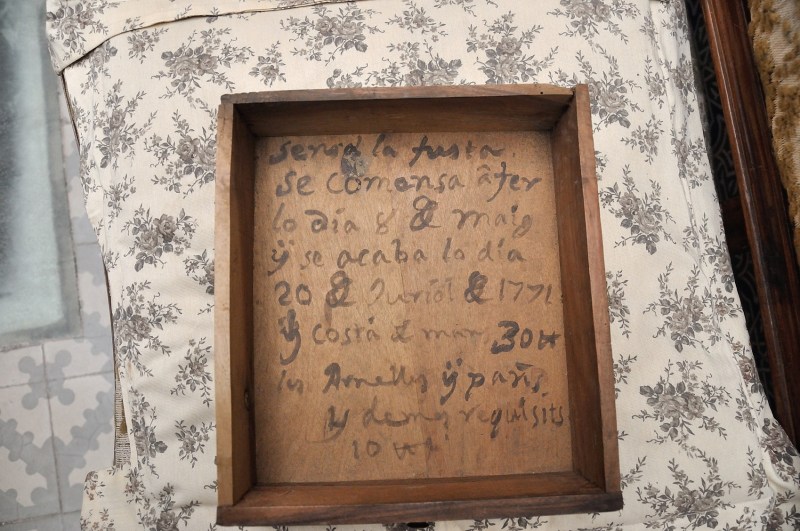 sens la fusta
se comensa â fer
lo dia 8 & maig
ÿ se acaba lo dia
20 & Juriol & 1771
ÿ costâ & mans 30 ₶
los Arnellas ÿ pañs
y demes requisits
10 ₶